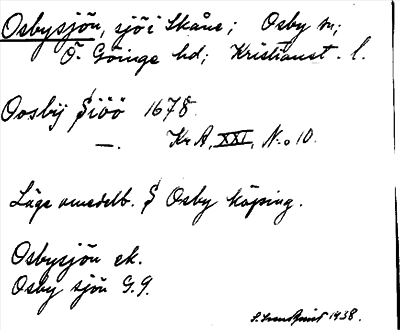 Osbysjön, sjö i Skåne; Osby sn;
Ö. Göinge hd; Kristianst. l.
Oosbij Siöö 1678.
—. Kr A, XXI, N:o 10.
Läge omedelb. S Osby köping.
Osbysjön ek.
Osby sjön G.9.
1938.